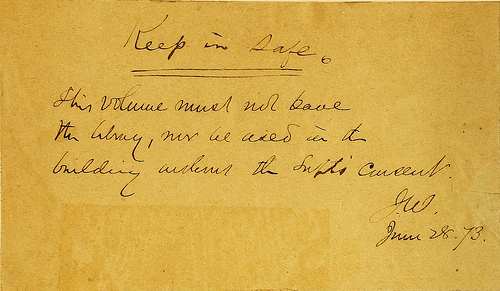 Keep in Safe.
This volume must not leave
the library, nor be used in the
building without the Supt's consent.
J.W.
June 28. 73.